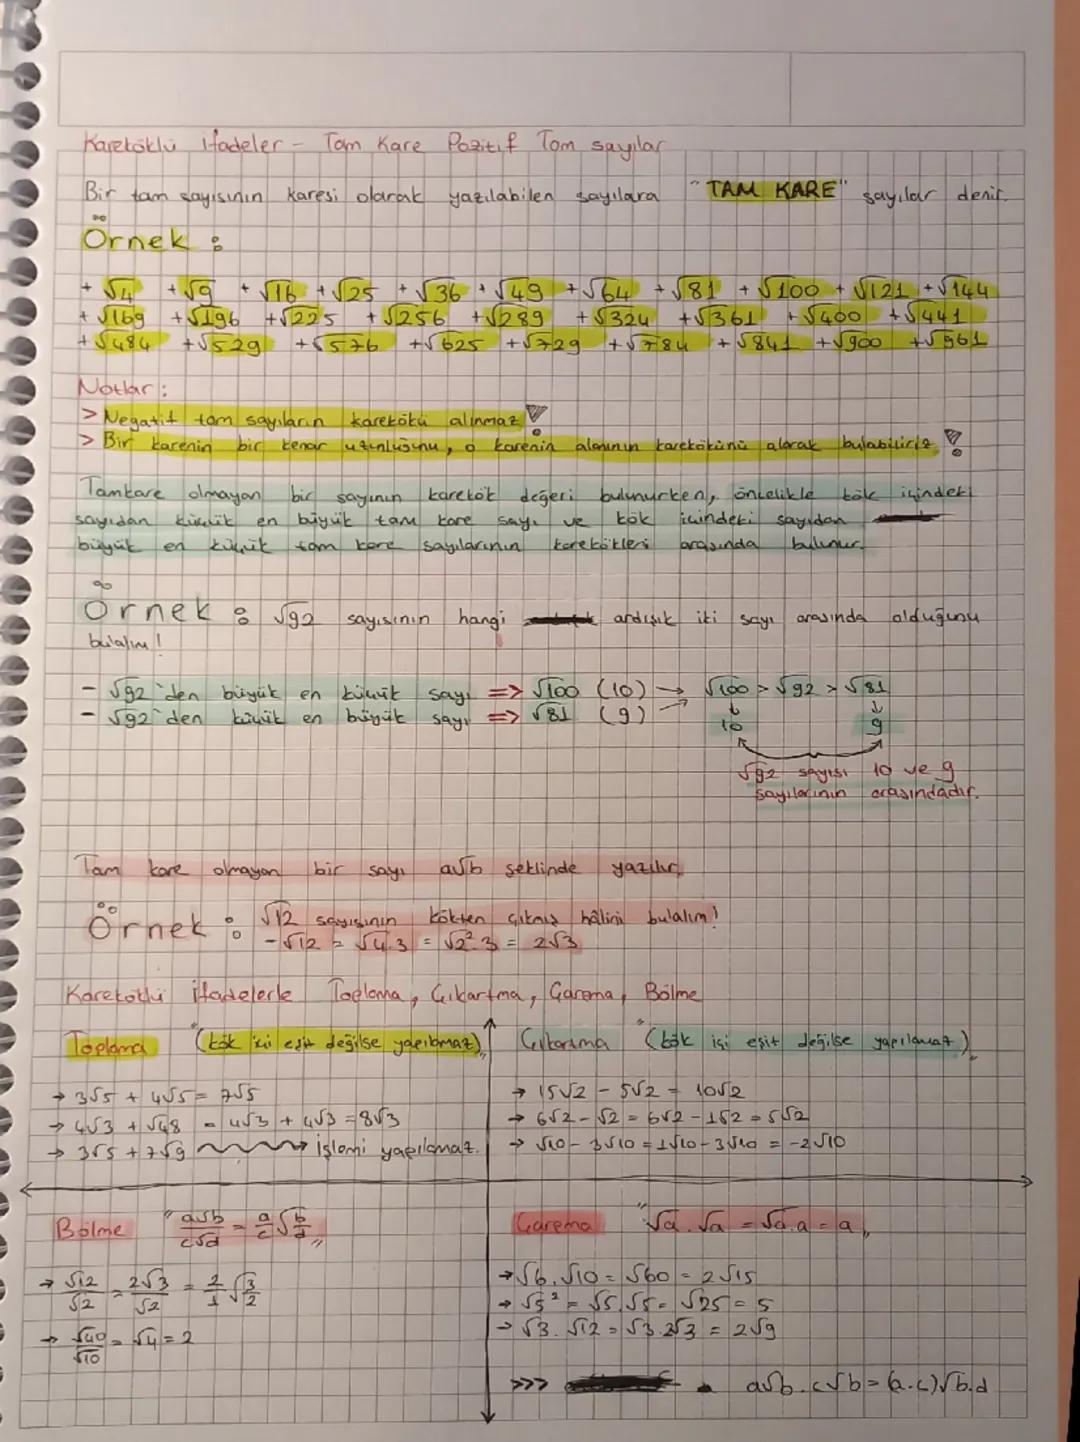 Kareköklü ifadeler - Tam Kare Pozitif Tam sayılar
Bir tam sayısının karesi olarak yazılabilen sayılara "TAM KARE" sayılar denir.
Örnek :
+ √4 + √9 + √16 + √25 + √36 + √49 + √64 + √81 + √100 + √121 + √144
+ √169 + √196 + √225 + √256 + √289 + √324 + √361 + √400 + √441
+ √484 + √529 + √576 + √625 + √729 + √784 + √841 + √900 + √961
Notlar :
> Negatif tam sayıların karekökü alınmaz!
> Bir karenin bir kenar uzunluğunu, o karenin alanının karekökünü alarak bulabiliriz!
Tamkare olmayan bir sayının karekök değeri bulunurken, öncelikle kök içindeki
sayıdan küçük en büyük tam kare sayı ve kök içindeki sayıdan
büyük en küçük tam kare sayılarının karekökleri arasında bulunur.
Örnek : √92 sayısının hangi ardışık iki sayı arasında olduğunu
bulalım!
- √92'den büyük en küçük sayı => √100 (10) → √100 > √92 > √81
- √92'den küçük en büyük sayı => √81 (9) ↓ 10 ↓ 9
√92 sayısı 10 ve 9
sayılarının arasındadır.
Tam kare olmayan bir sayı a√b şeklinde yazılır.
Örnek : √12 sayısının kökten çıkmış hâlini bulalım!
- √12 = √4.3 = √2².3 = 2√3
Kareköklü ifadelerle Toplama, Çıkartma, Çarpma, Bölme
Toplama "(kök içi eşit değilse yapılamaz)"
→ 3√5 + 4√5 = 7√5
→ 4√3 + √48 = 4√3 + 4√3 = 8√3
→ 3√5 + 7√9 → işlemi yapılamaz.
Çıkartma "(kök içi eşit değilse yapılamaz)"
→ 15√2 - 5√2 = 10√2
→ 6√2 - √2 = 6√2 - 1√2 = 5√2
→ √10 - 3√10 = 1√10 - 3√10 = -2√10
Bölme "a√b/c√d = a/c √b/d"
→ √12/√2 = 2√3/√2 = 2/1 √3/2
→ √40/√10 = √4 = 2
Çarpma "√a.√a = √a.a = a"
→ √6.√10 = √60 = 2√15
→ √5² = √5.√5 = √25 = 5
→ √3.√12 = √3.2√3 = 2√9
>>> a√b.c√b = (a.c)√b.d